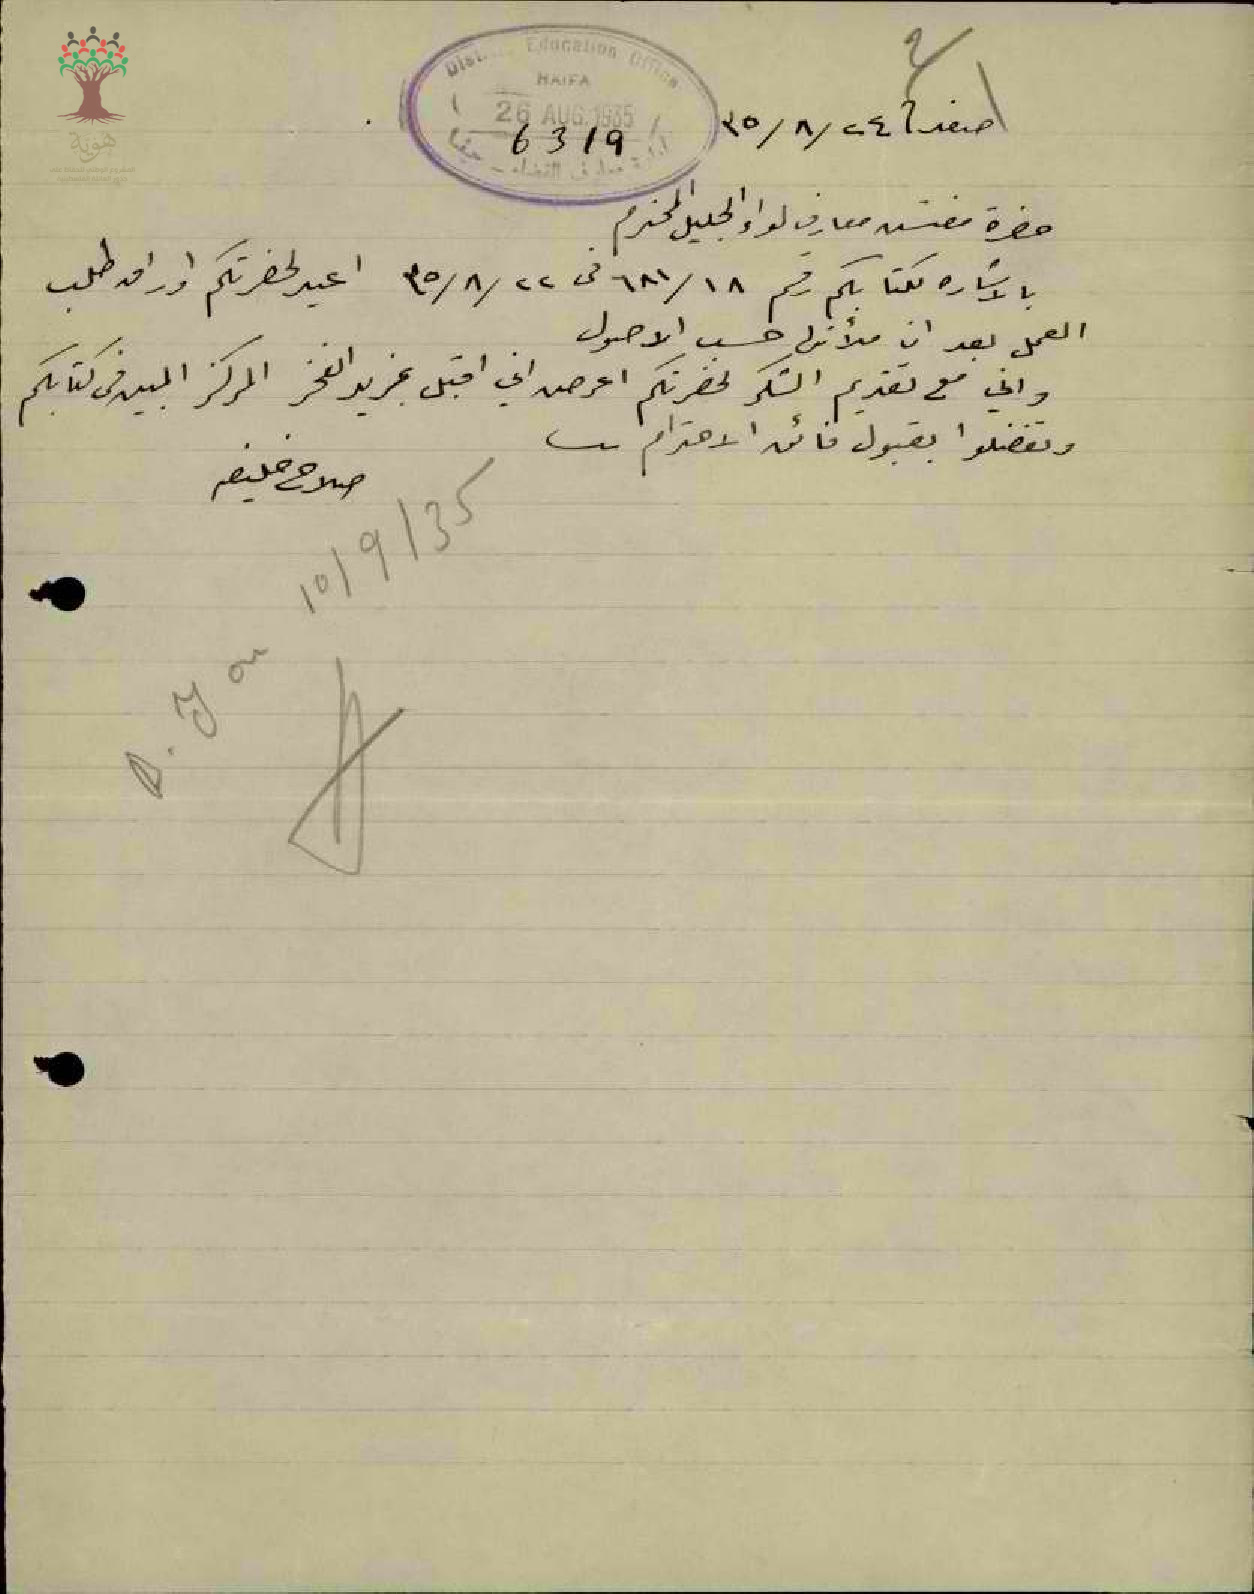 District Education Office
HAIFA
26 AUG. 1935
6319
ادارة معارف القضاء – حيفا
صفد في ٢٤/٨/٣٥
حضرة مفتش معارف لواء الجليل المحترم
بالاشاره لكتابكم رقم ١٨/٦٨١ في ٢٢/٨/٣٥ اعيد لحضرتكم اوراق طلب
العمل بعد ان ملأتها حسب الاصول
واني مع تقديم الشكر لحضرتكم اعرض اني اقبل بمزيد الفخر المركز المبين في كتابكم
وتفضلوا بقبول فائق الاحترام
صلاح خليفه
on 10/9/35
هوية